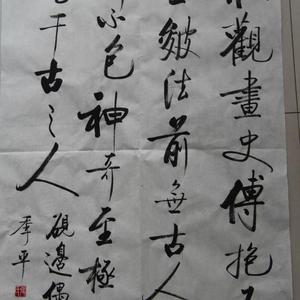 觀畫史傅抱
皴法前無古人
不包神奇至極
千古之人
硯邊偶
季平